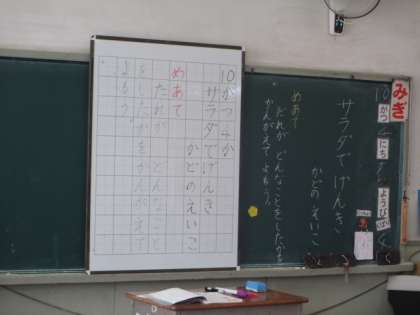 みぎ
10がつ4にち
ようび
サラダでげんき
かどのえいこ
めあて
だれが どんなことをしたかを
かんがえて よもう。
10がつ4か
サラダでげんき
かどのえいこ
めあて
だれが どんなこと
をしたかをかんがえて
よもう。